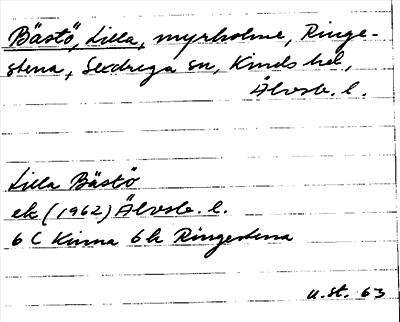 Bästö, Lilla, myrholme, Ringe-
stena, Sexdrega sn, Kinds hd,
Älvsb. l.
Lilla Bästö
ek (1962) Älvsb. l.
6 C Kinna 6 h Ringestena
U. St. 63